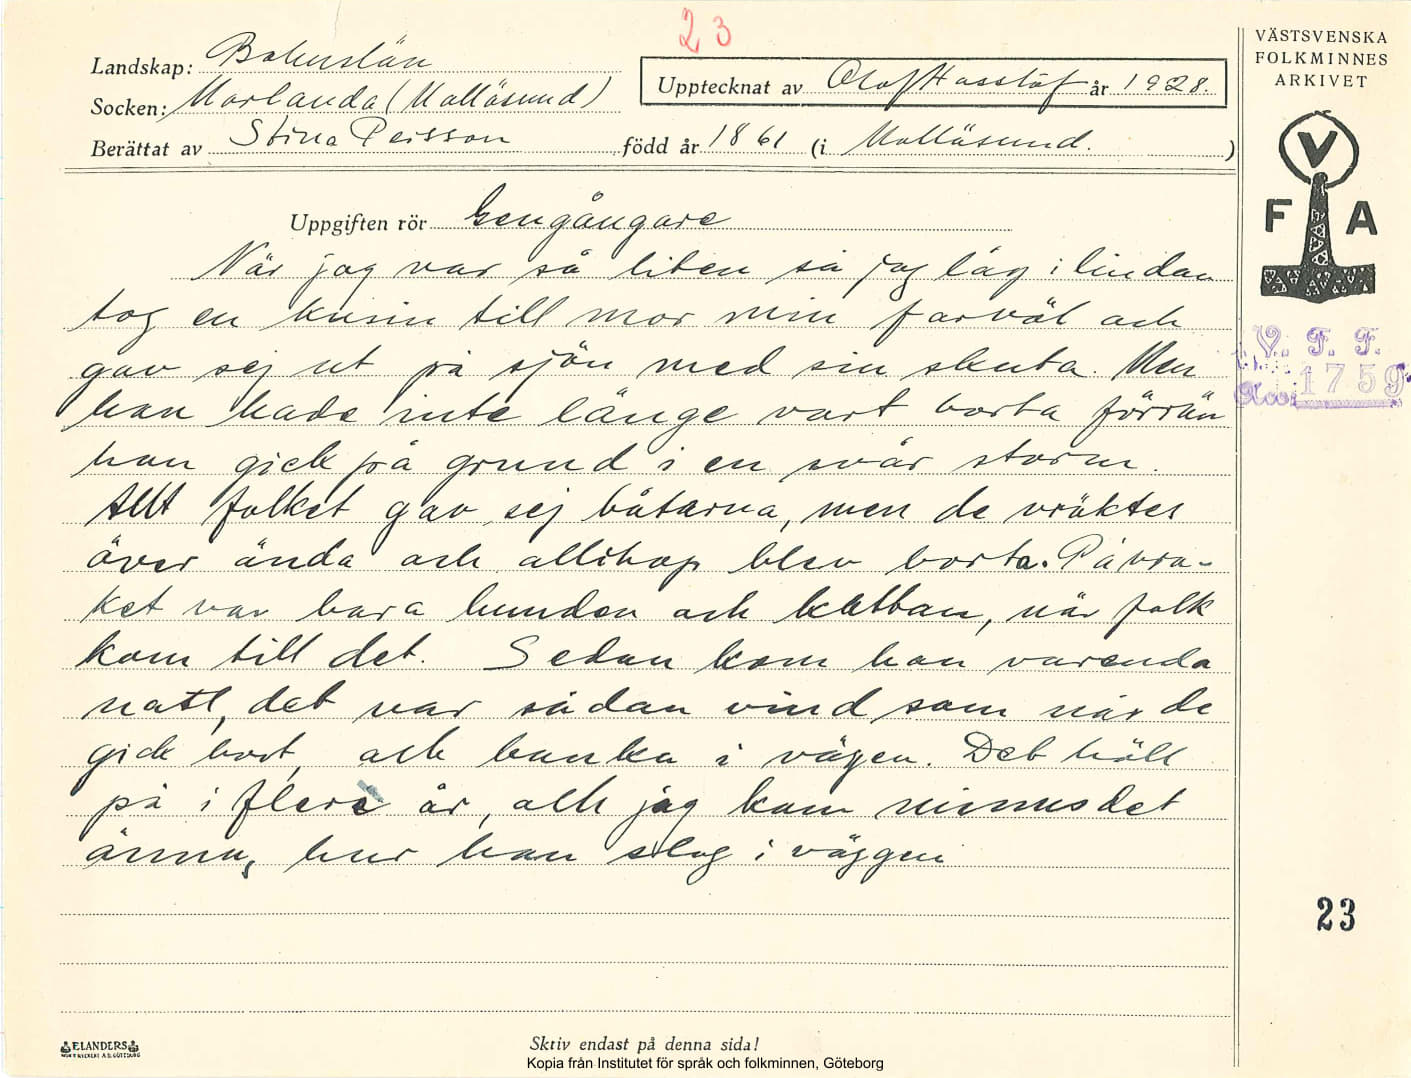 23
VÄSTSVENSKA
FOLKMINNES
ARKIVET
Landskap: Bohuslän
Upptecknat av Olof Hasslöf år 1928.
Socken: Morlanda (Mollösund)
Berättat av Stina Persson född år 1861 (i Mollösund.)
V
F A
Uppgiften rör Gengångare
När jag var så liten så jag låg i lindan
tog en kusin till mor min farväl och
gav sej ut på sjön med sin skuta. Men
han hade inte länge vart borta förrän
han gick på grund i en svår storm.
Allt folket gav sej båtarna, men de vräktes
över ända och allihop blev borta. På vra-
ket var bara hunden och kattan, när folk
kom till det. Sedan kom han varenda
natt, det var sådan vind som när de
gick bort, och banka i vägen. Det höll
på i flere år, och jag kom minnes det
ännu, hur han slog i väggen
V. F. F.
1759
23
ELANDERS
Skriv endast på denna sida!
Kopia från Institutet för språk och folkminnen, Göteborg